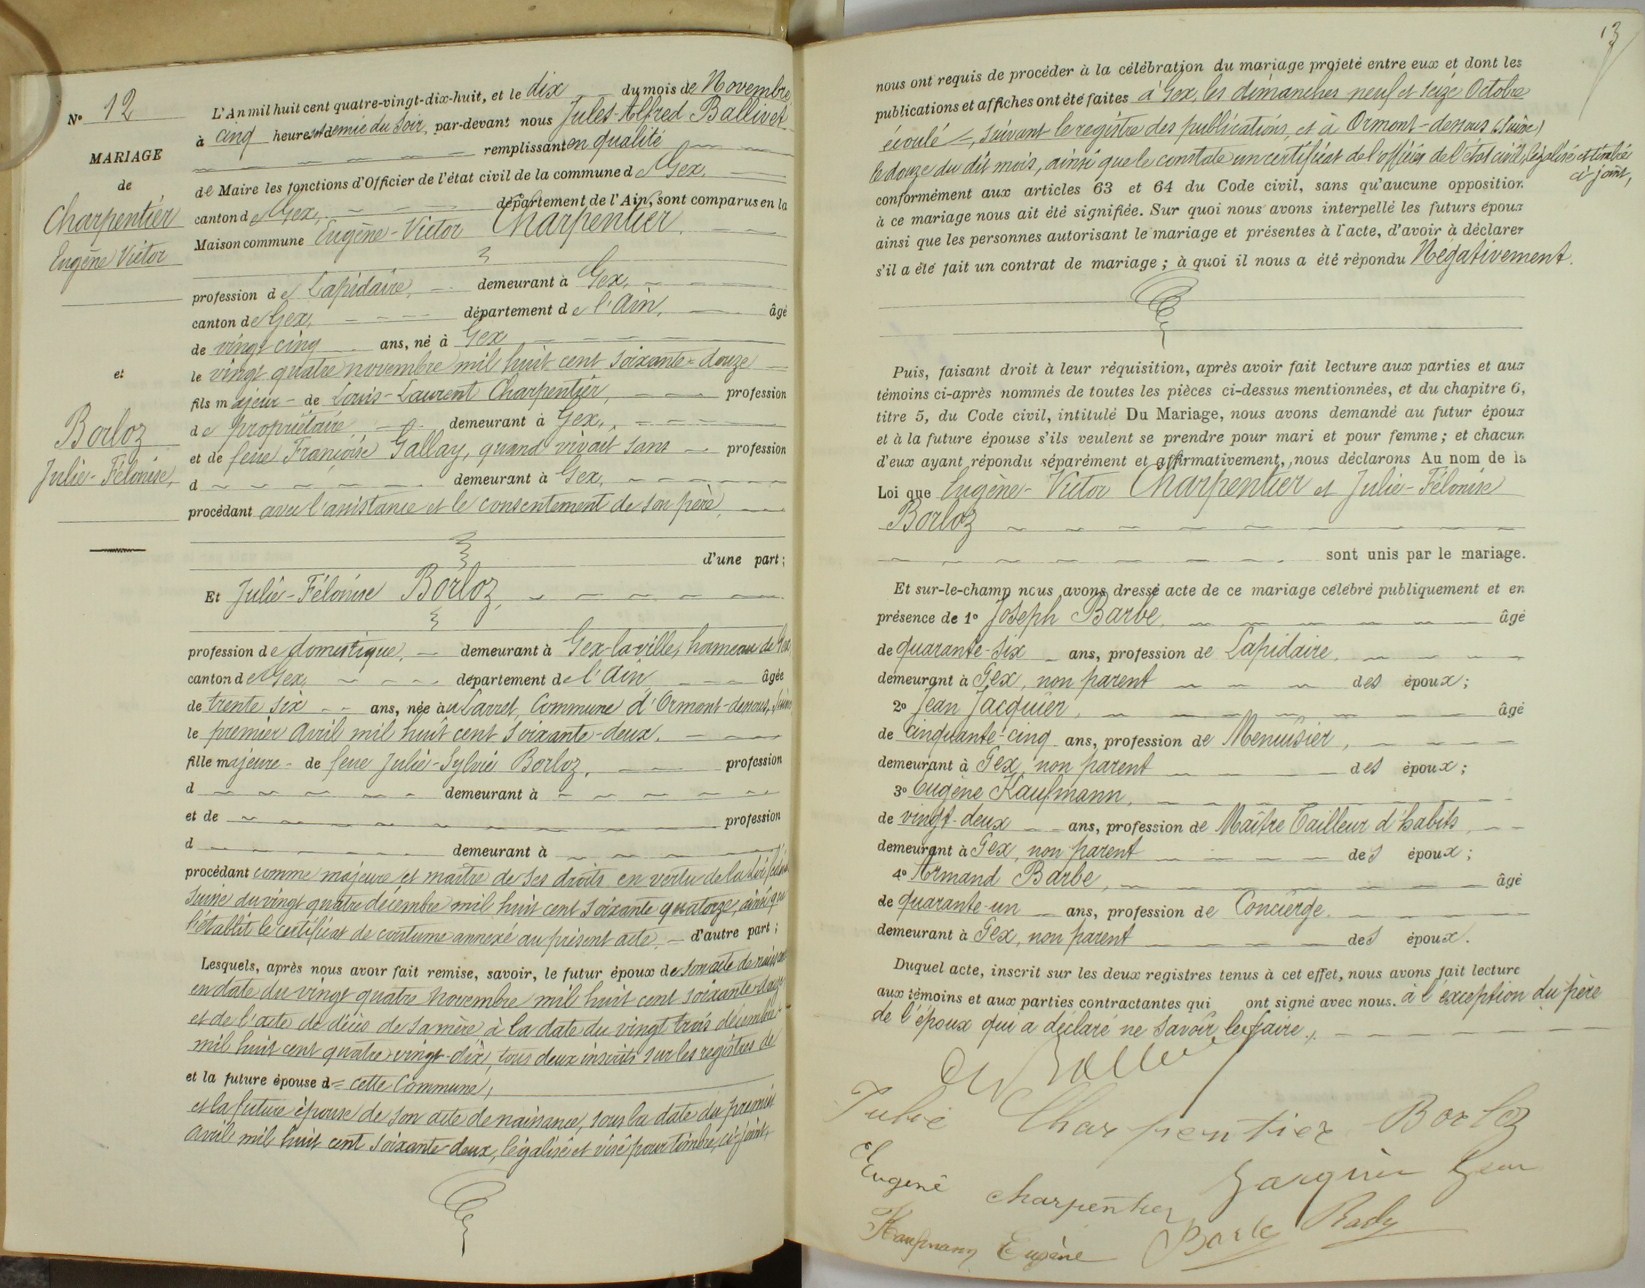 N° 12
MARIAGE
de
Charpentier
Eugène Victor
et
Borloz
Julie-Félonise,
L'An mil huit cent quatre-vingt-dix-huit, et le dix du mois de Novembre
à cinq heures et demie du soir, par-devant nous Jules-Alfred Ballivet
remplissant en qualité
de Maire les fonctions d'Officier de l'état civil de la commune de Gex,
canton de Gex, département de l'Ain, sont comparus en la
Maison commune Eugène-Victor Charpentier.
profession de Lapidaire, demeurant à Gex,
canton de Gex, département de l'Ain, âgé
de vingt cinq ans, né à Gex
le vingt quatre novembre mil huit cent soixante-douze
fils majeur de Louis-Laurent Charpentier, profession
de propriétaire demeurant à Gex,
et de feue Françoise Gallay, quand vivait sans profession
d demeurant à Gex,
procédant avec l'assistance et le consentement de son père,
d'une part;
Et Julie-Félonise Borloz,
profession de domestique, demeurant à Gex-la-ville, hameau de Gex
canton de Gex, département de l'Ain âgée
de trente six ans, née au Larret, Commune d'Ormont-dessous,
le premier Avril mil huit cent soixante-deux.
fille majeure de feue Julie-Sylvie Borloz, profession
d demeurant à
et de profession
d demeurant à
procédant comme majeure et maître de ses droits en vertu de la loi
suisse du vingt quatre décembre mil huit cent soixante quatorze, ainsi que
l'établit le certificat de coutume annexé au présent acte. d'autre part;
Lesquels, après nous avoir fait remise, savoir, le futur époux de son acte de naissance
en date du vingt quatre novembre mil huit cent soixante-douze
et de l'acte de décès de sa mère à la date du vingt trois décembre
mil huit cent quatre-vingt-dix, tous deux inscrits sur les registres de
et la future épouse d= cette Commune,
et la future épouse de son acte de naissance, sous la date du premier
Avril mil huit cent soixante-deux, légalisé et visé pour timbre, ci-joint,
13
nous ont requis de procéder à la célébration du mariage projeté entre eux et dont les
publications et affiches ont été faites à Gex, les dimanches neuf et seize Octobre
écoulé, suivant le registre des publications, et à Ormont-dessous (Suisse)
le douze du dit mois, ainsi que le constate un certificat de l'officier de l'état civil, légalisé et timbré
ci-joint,
conformément aux articles 63 et 64 du Code civil, sans qu'aucune opposition
à ce mariage nous ait été signifiée. Sur quoi nous avons interpellé les futurs époux
ainsi que les personnes autorisant le mariage et présentes à l'acte, d'avoir à déclarer
s'il a été fait un contrat de mariage; à quoi il nous a été répondu Négativement.
Puis, faisant droit à leur réquisition, après avoir fait lecture aux parties et aux
témoins ci-après nommés de toutes les pièces ci-dessus mentionnées, et du chapitre 6,
titre 5, du Code civil, intitulé Du Mariage, nous avons demandé au futur époux
et à la future épouse s'ils veulent se prendre pour mari et pour femme; et chacun
d'eux ayant répondu séparément et affirmativement, nous déclarons Au nom de la
Loi que Eugène-Victor Charpentier et Julie-Félonise
Borloz
sont unis par le mariage.
Et sur-le-champ nous avons dressé acte de ce mariage célébré publiquement et en
présence de 1° Joseph Barbe, âgé
de quarante-six ans, profession de Lapidaire,
demeurant à Gex, non parent des époux;
2° Jean Jacquier, âgé
de cinquante-cinq ans, profession de Menuisier,
demeurant à Gex, non parent des époux;
3° Eugène Kaufmann,
de vingt-deux ans, profession de Maître Tailleur d'habits,
demeurant à Gex, non parent des époux;
4° Armand Barbe, âgé
de quarante-un ans, profession de Concierge.
demeurant à Gex, non parent des époux.
Duquel acte, inscrit sur les deux registres tenus à cet effet, nous avons fait lecture
aux témoins et aux parties contractantes qui ont signé avec nous. à l'exception du père
de l'époux qui a déclaré ne savoir le faire.
Julie Charpentier Borloz
Eugène Charpentier
Kaufmann Eugène Barbe